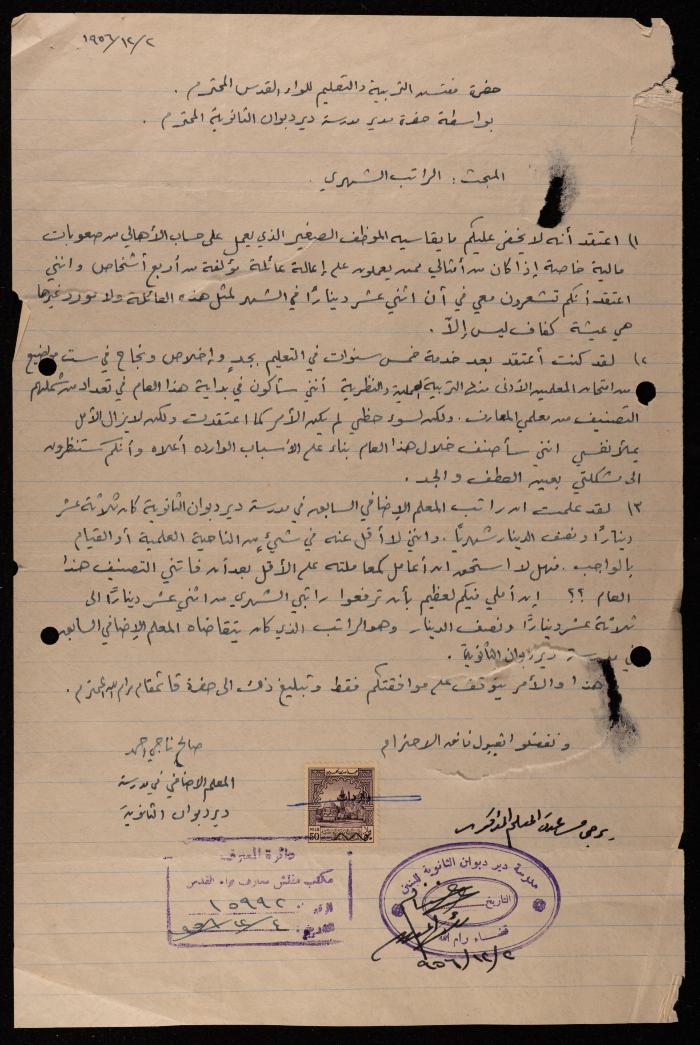 ١٩٥٦/١٢/٢
حضرة مفتش التربية والتعليم للواء القدس المحترم .
بواسطة حضرة مدير مدرسة ديردبوان الثانوية المحترم .
المبحث : الراتب الشهري
١) اعتقد أنه لا يخفى عليكم ما يقاسيه الموظف الصغير الذي يعمل على حساب الأهالي من صعوبات
مالية خاصة إذا كان من أمثالي ممن يعملون على إعالة عائلة مؤلفة من أربع أشخاص وانني
اعتقد أنكم تشعرون معي في أن اثني عشر دينارًا في الشهر لمثل هذه العائلة ولا مورد غيرها
هي عيشة كفاف ليس إلاّ .
٢) لقد كنت أعتقد بعد خدمة خمس سنوات في التعليم بجدٍ وإخلاص ونجاح في ست مواضيع
من امتحان المعلمين الأدنى منها التربية العملية والنظرية أنني سأكون في بداية هذا العام في تعداد من شملهم
التصنيف من معلمي المعارف . ولكن لسوء حظي لم يكن الأمر كما اعتقدت ولكن لا يزال الأمل
يملؤ نفسي انني سأصنف خلال هذا العام بناء على الأسباب الوارده أعلاه وأنكم ستنظرون
الى مشكلتي بعين العطف والجد .
٣) لقد علمت ان راتب المعلم الإضافي السابق في مدرسة ديردبوان الثانوية كان ثلاثة عشر
دينارًا ونصف الدينار شهريًا . وانني لا أقل عنه في شيء من الناحية العلمية أو القيام
بالواجب . فهل لا استحق ان أعامل كمعاملته على الأقل بعد أن فاتني التصنيف هذا
العام ؟؟ إن أملي فيكم لعظيم بأن ترفعوا راتبي الشهري من اثني عشر دينارًا الى
ثلاثة عشر دينارًا ونصف الدينار وهو الراتب الذي كان يتقاضاه المعلم الإضافي السابق
في مدرسة ديردبوان الثانوية .
هذا والأمر يتوقف على موافقتكم فقط وتبليغ ذلك الى حضرة قائمقام رام الله المحترم .
وتفضلوا بقبول فائق الاحترام
صالح ناجي احمد
المعلم الإضافي في مدرسة
ديردبوان الثانوية
يرجى مساعدة المعلم المذكور
50
MILS
دائرة المعارف
مكتب مفتش معارف لواء القدس
الرقم ١٥٩٩٢
التاريخ ٩٥٦/١٢/٤
مدرسة دير دبوان الثانوية للبنين
التاريخ
قضاء رام الله
٩٥٦/١٢/٢